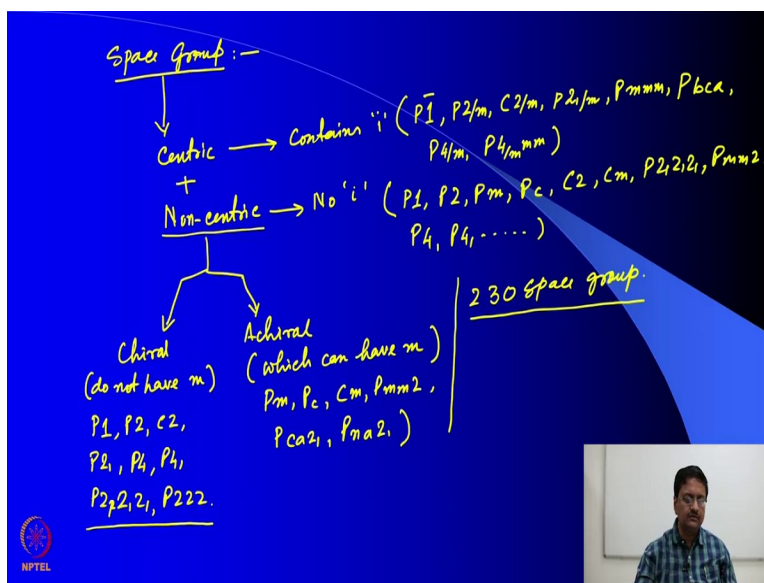 Space Group :—
Centric → Contains "i" ( P1̄, P2/m, C2/m, P2₁/m, Pmmm, Pbca,
P4/m, P4/mmm )
+
Non-centric → No 'i' ( P1, P2, Pm, Pc, C2, Cm, P2₁2₁2₁, Pmm2
P4, P4₁ ..... )
230 Space group.
Chiral
(do not have m)
P1, P2, C2,
P2₁, P4, P4₁
P2₁2₁2₁, P222.
Achiral
(which can have m)
Pm, Pc, Cm, Pmm2,
Pca2₁, Pna2₁ )
NPTEL